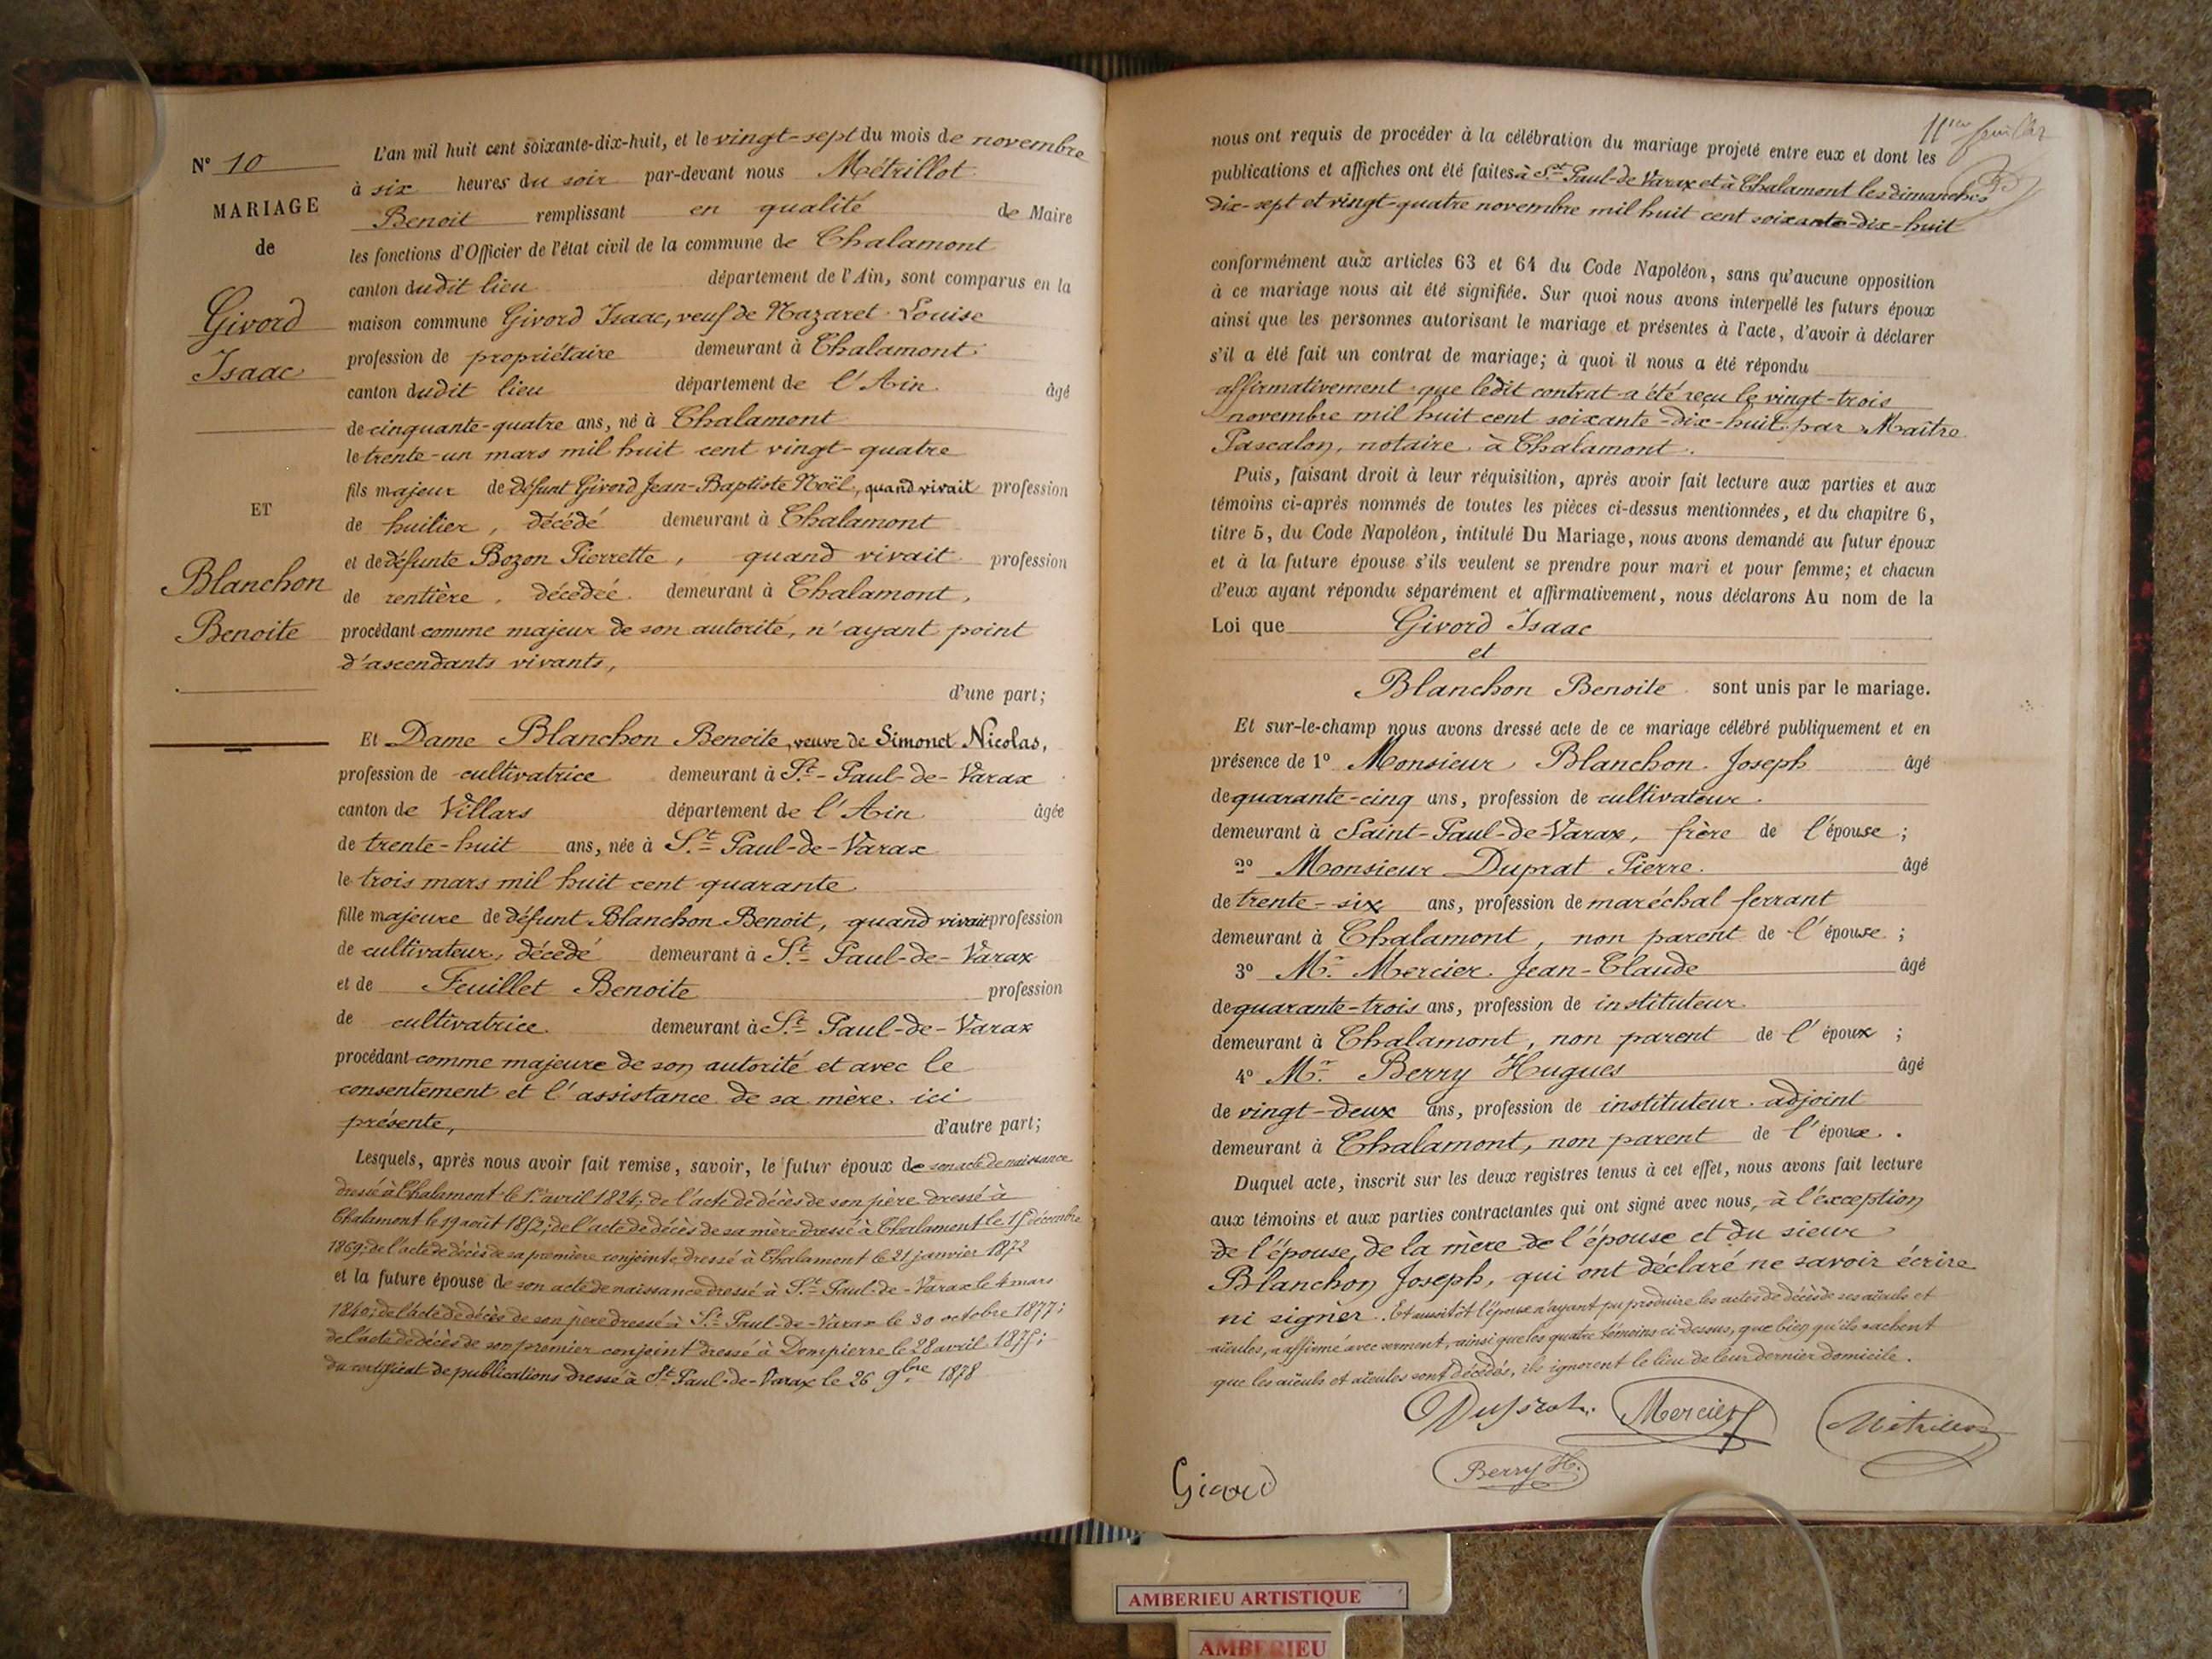 N° 10
MARIAGE
de
Givord
Isaac
ET
Blanchon
Benoite
L'an mil huit cent soixante-dix-huit, et le vingt-sept du mois de novembre
à six heures du soir par-devant nous Métrillot
Benoit remplissant en qualité de Maire
les fonctions d'Officier de l'état civil de la commune de Chalamont
canton dudit lieu département de l'Ain, sont comparus en la
maison commune Givord Isaac, veuf de Nazaret Louise
profession de propriétaire demeurant à Chalamont
canton dudit lieu département de l'Ain âgé
de cinquante-quatre ans, né à Chalamont
le trente-un mars mil huit cent vingt-quatre
fils majeur de défunt Givord Jean-Baptiste Noël, quand vivait profession
de huilier, décédé demeurant à Chalamont
et de défunte Bozon Pierrette, quand vivait profession
de rentière, décédée demeurant à Chalamont,
procédant comme majeur de son autorité, n'ayant point
d'ascendants vivants,
d'une part;
Et Dame Blanchon Benoite, veuve de Simonet Nicolas,
profession de cultivatrice demeurant à St-Paul-de-Varax
canton de Villars département de l'Ain âgée
de trente-huit ans, née à St Paul-de-Varax
le trois mars mil huit cent quarante
fille majeure de défunt Blanchon Benoit, quand vivait profession
de cultivateur, décédé demeurant à St Paul-de-Varax
et de Feuillet Benoite profession
de cultivatrice demeurant à St Paul-de-Varax
procédant comme majeure de son autorité et avec le
consentement et l'assistance de sa mère ici
présente, d'autre part;
Lesquels, après nous avoir fait remise, savoir, le futur époux de son acte de naissance
dressé à Chalamont le 1er avril 1824; de l'acte de décès de son père dressé à
Chalamont le 19 août 1852; de l'acte de décès de sa mère dressé à Chalamont le 15 décembre
1869; de l'acte de décès de sa première conjointe dressé à Chalamont le 21 janvier 1872
et la future épouse de son acte de naissance dressé à St Paul-de-Varax le 4 mars
1840; de l'acte de décès de son père dressé à St Paul-de-Varax le 30 octobre 1877;
de l'acte de décès de son premier conjoint dressé à Dompierre le 28 avril 1875;
du certificat de publications dressé à St Paul-de-Varax le 26 9bre 1878
11me feuillet
nous ont requis de procéder à la célébration du mariage projeté entre eux et dont les
publications et affiches ont été faites à St Paul-de-Varax et à Chalamont les dimanches
dix-sept et vingt-quatre novembre mil huit cent soixante-dix-huit
conformément aux articles 63 et 64 du Code Napoléon, sans qu'aucune opposition
à ce mariage nous ait été signifiée. Sur quoi nous avons interpellé les futurs époux
ainsi que les personnes autorisant le mariage et présentes à l'acte, d'avoir à déclarer
s'il a été fait un contrat de mariage; à quoi il nous a été répondu
affirmativement que ledit contrat a été reçu le vingt-trois
novembre mil huit cent soixante-dix-huit par Maître
Pascalon, notaire à Chalamont.
Puis, faisant droit à leur réquisition, après avoir fait lecture aux parties et aux
témoins ci-après nommés de toutes les pièces ci-dessus mentionnées, et du chapitre 6,
titre 5, du Code Napoléon, intitulé Du Mariage, nous avons demandé au futur époux
et à la future épouse s'ils veulent se prendre pour mari et pour femme; et chacun
d'eux ayant répondu séparément et affirmativement, nous déclarons Au nom de la
Loi que Givord Isaac
et
Blanchon Benoite sont unis par le mariage.
Et sur-le-champ nous avons dressé acte de ce mariage célébré publiquement et en
présence de 1° Monsieur Blanchon Joseph âgé
de quarante-cinq ans, profession de cultivateur
demeurant à Saint-Paul-de-Varax, frère de l'épouse;
2° Monsieur Duprat Pierre âgé
de trente-six ans, profession de maréchal ferrant
demeurant à Chalamont, non parent de l'épouse;
3° Mr Mercier Jean-Claude âgé
de quarante-trois ans, profession de instituteur
demeurant à Chalamont, non parent de l'époux;
4° Mr Berry Hugues âgé
de vingt-deux ans, profession de instituteur adjoint
demeurant à Chalamont, non parent de l'époux.
Duquel acte, inscrit sur les deux registres tenus à cet effet, nous avons fait lecture
aux témoins et aux parties contractantes qui ont signé avec nous, à l'exception
de l'épouse, de la mère de l'épouse et du sieur
Blanchon Joseph, qui ont déclaré ne savoir écrire
ni signer. Et aussitôt l'époux n'ayant pu produire les actes de décès de ses aïeuls et
aïeules, a affirmé avec serment, ainsi que les quatre témoins ci-dessus, que bien qu'ils sachent
que les aïeuls et aïeules sont décédés, ils ignorent le lieu de leur dernier domicile.
Duprat Mercier Métrillot
Berry H.
Givord
AMBERIEU ARTISTIQUE
AMBERIEU